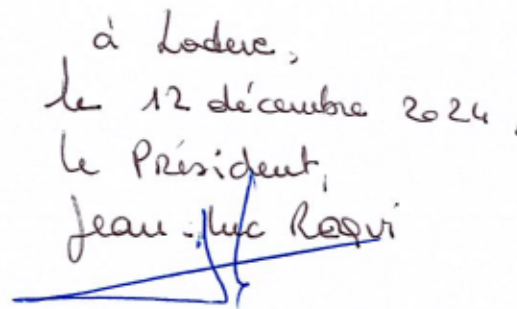 à Lodève,
le 12 décembre 2024,
le Président,
Jean-Luc Requi